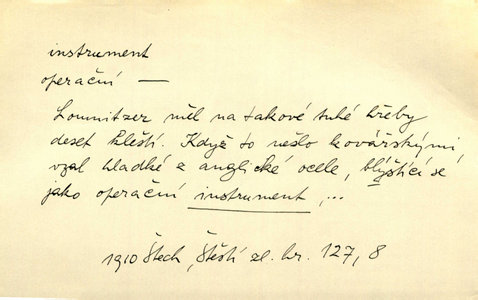 instrument
operační —
Lomnitzer měl na takové tuhé hřeby
deset kleští. Když to nešlo kovářskými,
vzal hladké z anglické ocele, blýštící se
jako operační instrument, ...
1910 Štech, Štěstí zl. hr. 127, 8